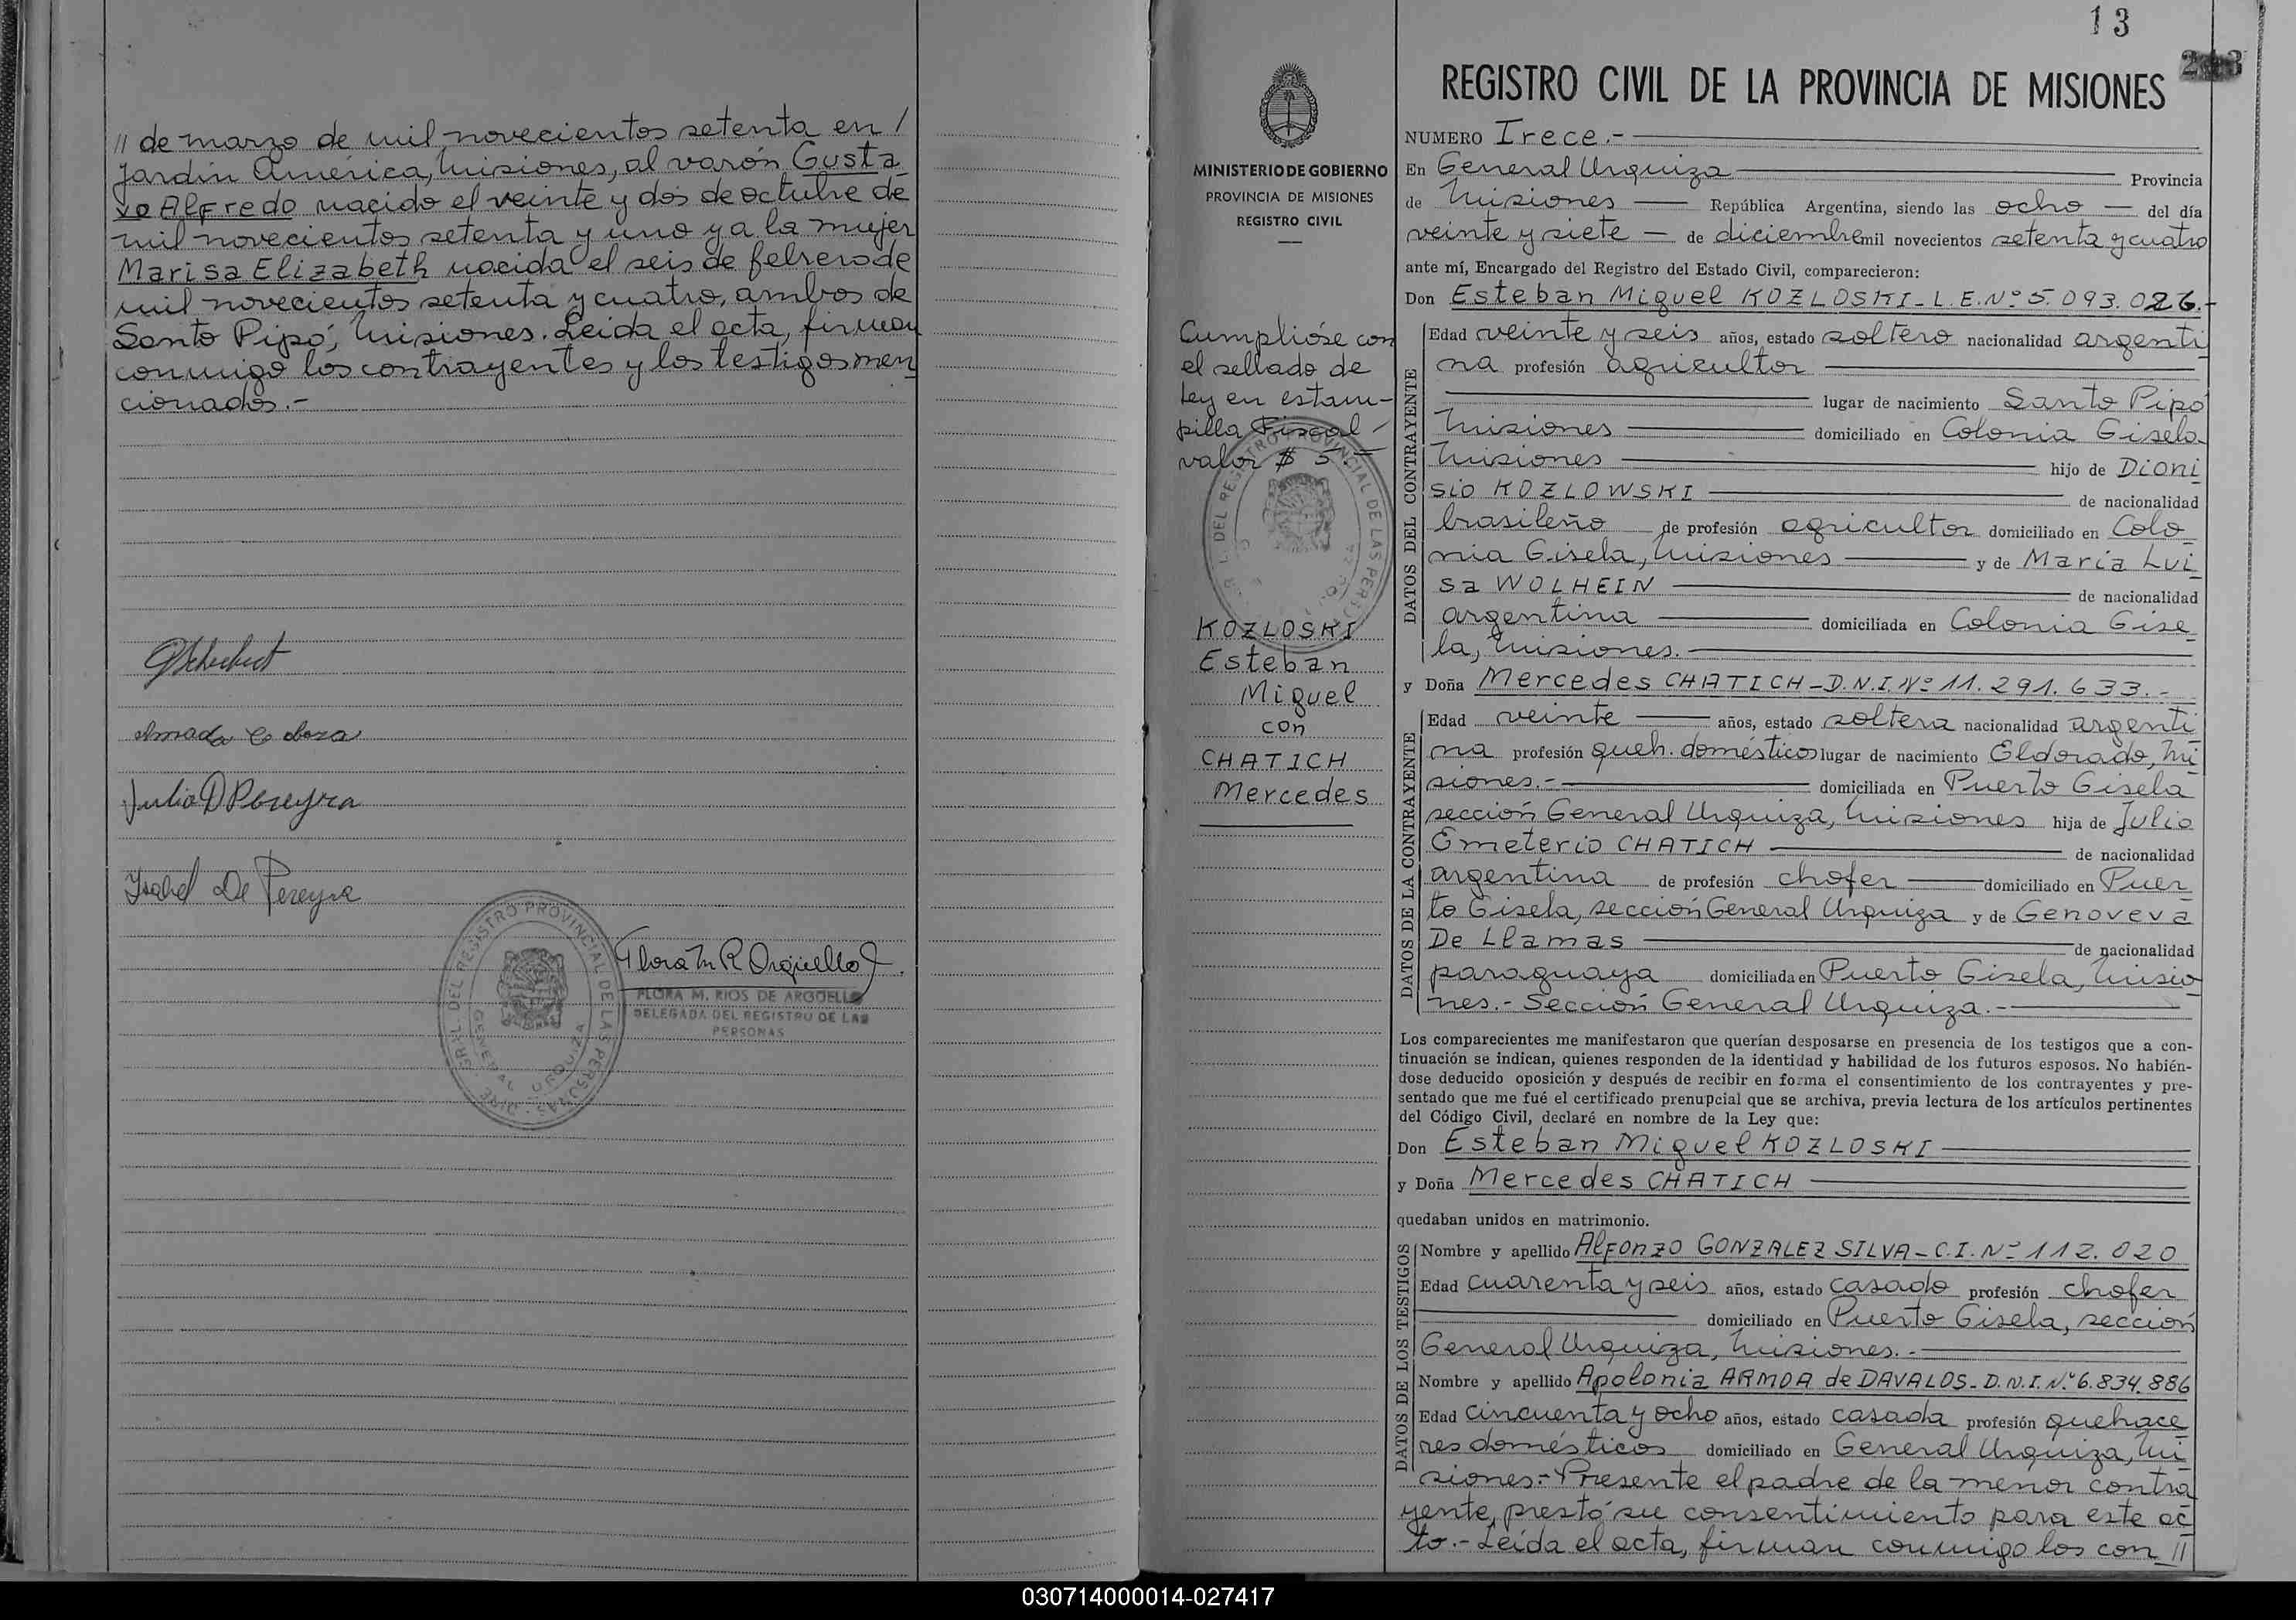 // de marzo de mil novecientos setenta en /
Jardín América, Misiones, al varón Gusta
vo Alfredo nacido el veinte y dos de octubre de
mil novecientos setenta y uno y a la mujer
Marisa Elizabeth nacida el seis de febrero de
mil novecientos setenta y cuatro, ambos de
Santo Pipó, Misiones. Leida el acta, firman
conmigo los contrayentes y los testigos men
cionados.-
Julio D Pereyra
Isabel De Pereyra
Flora M R Argüello
FLORA M. RIOS DE ARGÜELLO
DELEGADA DEL REGISTRO DE LAS
PERSONAS
DIRE. GRAL. DEL REGISTRO PROVINCIAL DE LAS PERSONAS
GENERAL URQUIZA
13
MINISTERIO DE GOBIERNO
PROVINCIA DE MISIONES
REGISTRO CIVIL
Cumplióse con
el sellado de
ley en estam-
pilla Fiscal /
valor $ 5.=
GRAL. DEL REGISTRO PROVINCIAL DE LAS PERSO
KOZLOSKI
Esteban
Miguel
con
CHATICH
Mercedes
REGISTRO CIVIL DE LA PROVINCIA DE MISIONES
NUMERO Trece.-
En General Urquiza Provincia
de Misiones República Argentina, siendo las ocho del día
veinte y siete de diciembre mil novecientos setenta y cuatro
ante mí, Encargado del Registro del Estado Civil, comparecieron:
Don Esteban Miguel KOZLOSKI-L.E.Nº 5.093.026.-
DATOS DEL CONTRAYENTE
Edad veinte y seis años, estado soltero nacionalidad argenti
na profesión agricultor
lugar de nacimiento Santo Pipó
Misiones domiciliado en Colonia Gisela
Misiones hijo de Dioni
sio KOZLOWSKI de nacionalidad
brasileño de profesión agricultor domiciliado en Colo
nia Gisela, Misiones y de María Lui
sa WOLHEIN de nacionalidad
argentina domiciliada en Colonia Gise
la, Misiones.-
y Doña Mercedes CHATICH-D.N.I.Nº 11.291.633.-
DATOS DE LA CONTRAYENTE
Edad veinte años, estado soltera nacionalidad argenti
na profesión queh. domésticos lugar de nacimiento Eldorado, Mi
siones.- domiciliada en Puerto Gisela
sección General Urquiza, Misiones hija de Julio
Emeterio CHATICH de nacionalidad
argentina de profesión chofer domiciliado en Puer
to Gisela, sección General Urquiza y de Genoveva
De Llamas de nacionalidad
paraguaya domiciliada en Puerto Gisela, Misio
nes.- Sección General Urquiza.-
Los comparecientes me manifestaron que querían desposarse en presencia de los testigos que a con-
tinuación se indican, quienes responden de la identidad y habilidad de los futuros esposos. No habién-
dose deducido oposición y después de recibir en forma el consentimiento de los contrayentes y pre-
sentado que me fué el certificado prenupcial que se archiva, previa lectura de los artículos pertinentes
del Código Civil, declaré en nombre de la Ley que:
Don Esteban Miguel KOZLOSKI
y Doña Mercedes CHATICH
quedaban unidos en matrimonio.
DATOS DE LOS TESTIGOS
Nombre y apellido Alfonzo GONZALEZ SILVA-C.I.Nº 112.020
Edad cuarenta y seis años, estado casado profesión chofer
domiciliado en Puerto Gisela, sección
General Urquiza, Misiones.-
Nombre y apellido Apolonia ARMOA de DAVALOS-D.N.I.Nº 6.834.886
Edad cincuenta y ocho años, estado casada profesión quehace
res domésticos domiciliado en General Urquiza, Mi
siones.- Presente el padre de la menor contra
yente, prestó su consentimiento para este ac
to.- Leída el acta, firman conmigo los con //
030714000014-027417